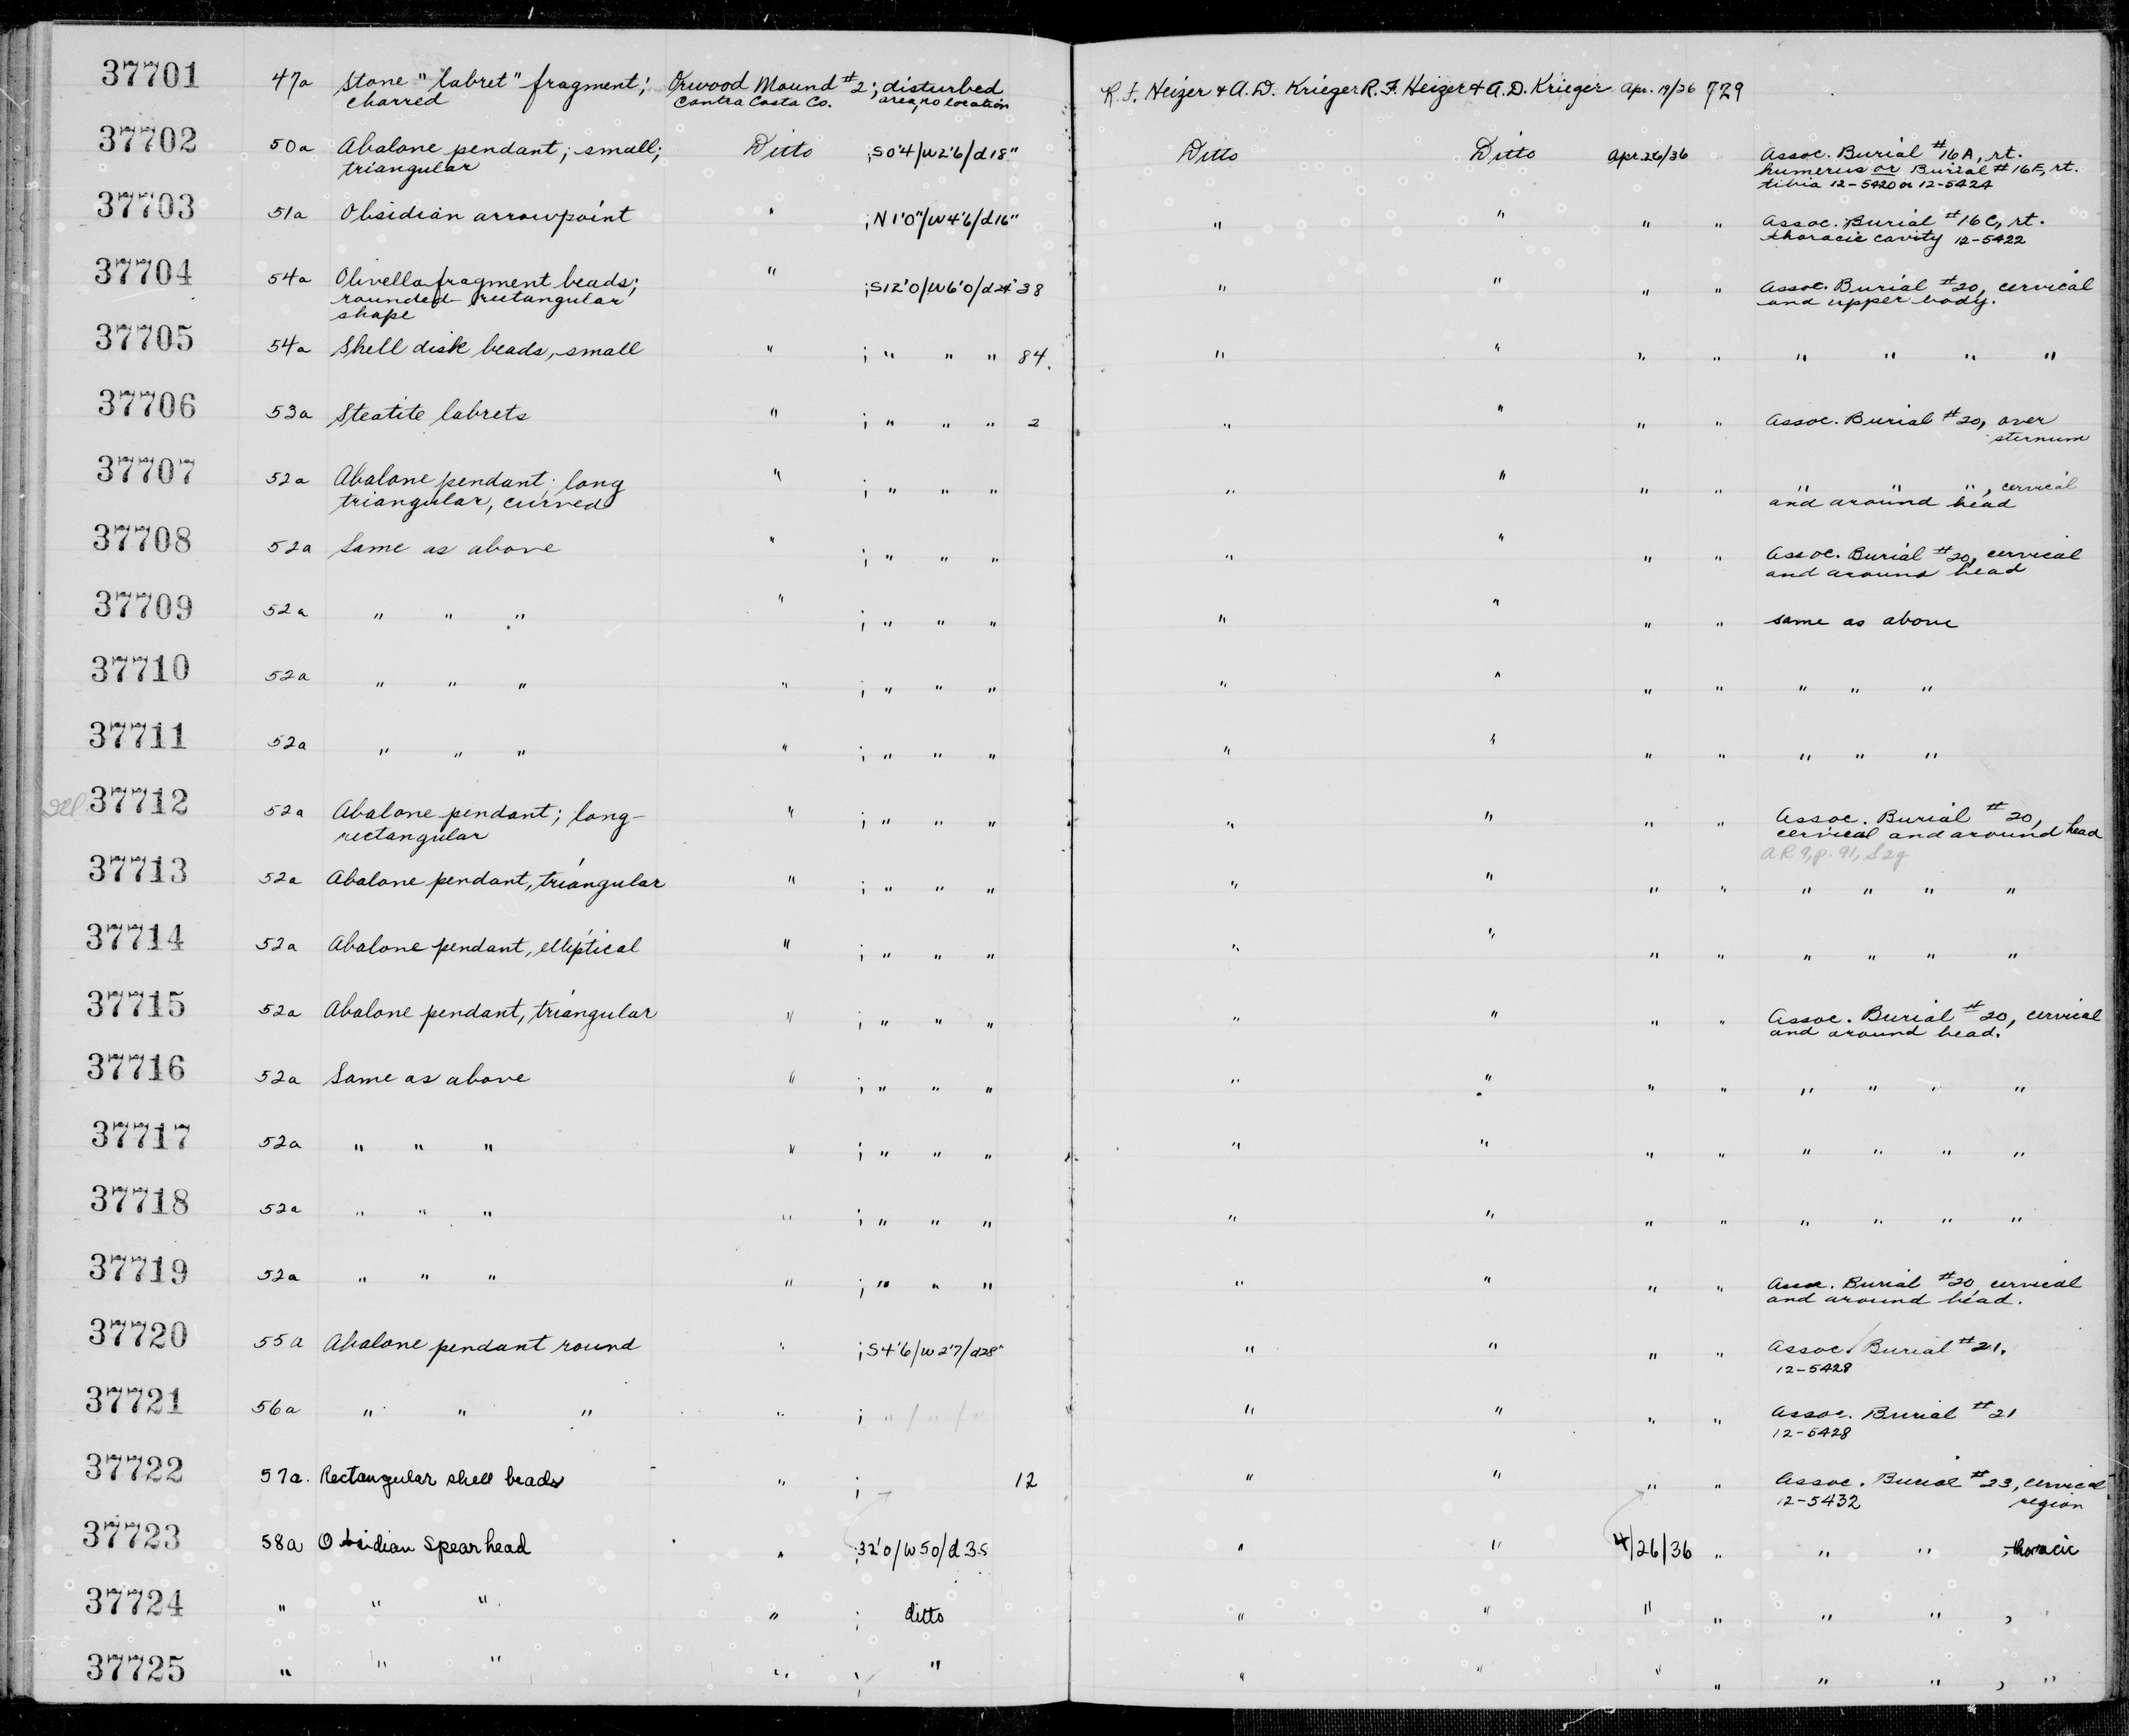 37701 47a Stone "labret" fragment; Orwood Mound #2; disturbed R. F. Heizer & A. D. Krieger R. F. Heizer & A. D. Krieger Apr. 19/36 729
charred Contra Costa Co. area, no location
37702 50a Abalone pendant; small; Ditto ;S0'4/W2'6/d18" Ditto Ditto Apr.26/36 Assoc. Burial #16A, rt.
triangular humerus or Burial #16E, rt.
tibia 12-5420 or 12-5424
37703 51a Obsidian arrowpoint " ;N1'0"/W4'6/d16" " " " " Assoc. Burial #16C, rt.
thoracic cavity 12-5422
37704 54a Olivella fragment beads; " ;S12'0/W6'0/d24" 38 " " " " Assoc. Burial #20, cervical
rounded rectangular and upper body.
shape
37705 54a Shell disk beads, small " ; " " " 84. " " " " " " " "
37706 53a Steatite labrets " ; " " " 2 " " " " Assoc. Burial #20, over
sternum
37707 52a Abalone pendant; long " ; " " " " " " " " " ", cervical
triangular, curved and around head
37708 52a Same as above " ; " " " " " " " Assoc. Burial #20, cervical
and around head
37709 52a " " " " ; " " " " " " " same as above
37710 52a " " " " ; " " " " " " " " " "
37711 52a " " " " ; " " " " " " " " " "
37712 52a Abalone pendant; long- " ; " " " " " " " Assoc. Burial #20,
rectangular cervical and around head
AR 9, p. 91, S2g
37713 52a Abalone pendant, triangular " ; " " " " " " " " " " "
37714 52a Abalone pendant, elliptical " ; " " " " " " " " " " "
37715 52a Abalone pendant, triangular " ; " " " " " " " Assoc. Burial #20, cervical
and around head.
37716 52a Same as above " ; " " " " " " " " " " "
37717 52a " " " " ; " " " " " " " " " " "
37718 52a " " " " ; " " " " " " " " " " "
37719 52a " " " " ; " " " " " " " Assoc. Burial #20 cervical
and around head.
37720 55a Abalone pendant round " ;S4'6/W2'7/d28" " " " " Assoc. Burial #21.
12-5428
37721 56a " " " " ; " / " / " " " " " Assoc. Burial #21
12-5428
37722 57a. Rectangular shell beads " ; 12 " " " " Assoc. Burial #23, cervical
12-5432 region
37723 58a Obsidian Spearhead " ;32'0/W50/d35 " " 4/26/36 " " " , thoracic
37724 " " " " ; ditto " " " " " " , "
37725 " " " " ; " " " " " " " , "